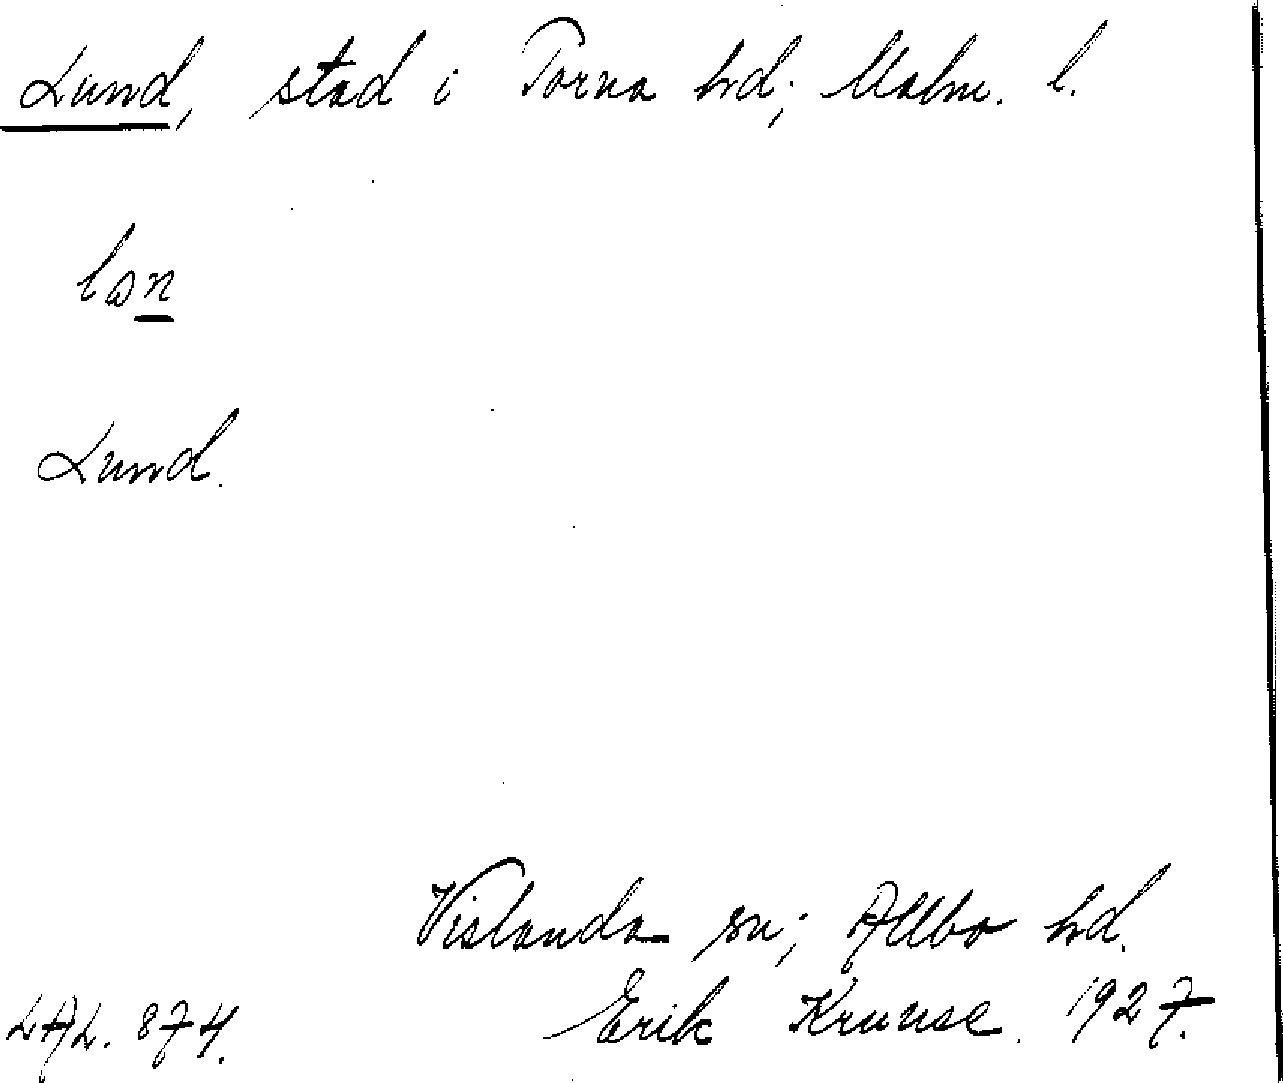 Lund, stad i Torna hd; Malm. l.
lɷn
Lund.
Vislanda sn; Allbo hd.
LAL. 874. Erik Kruuse. 1927.